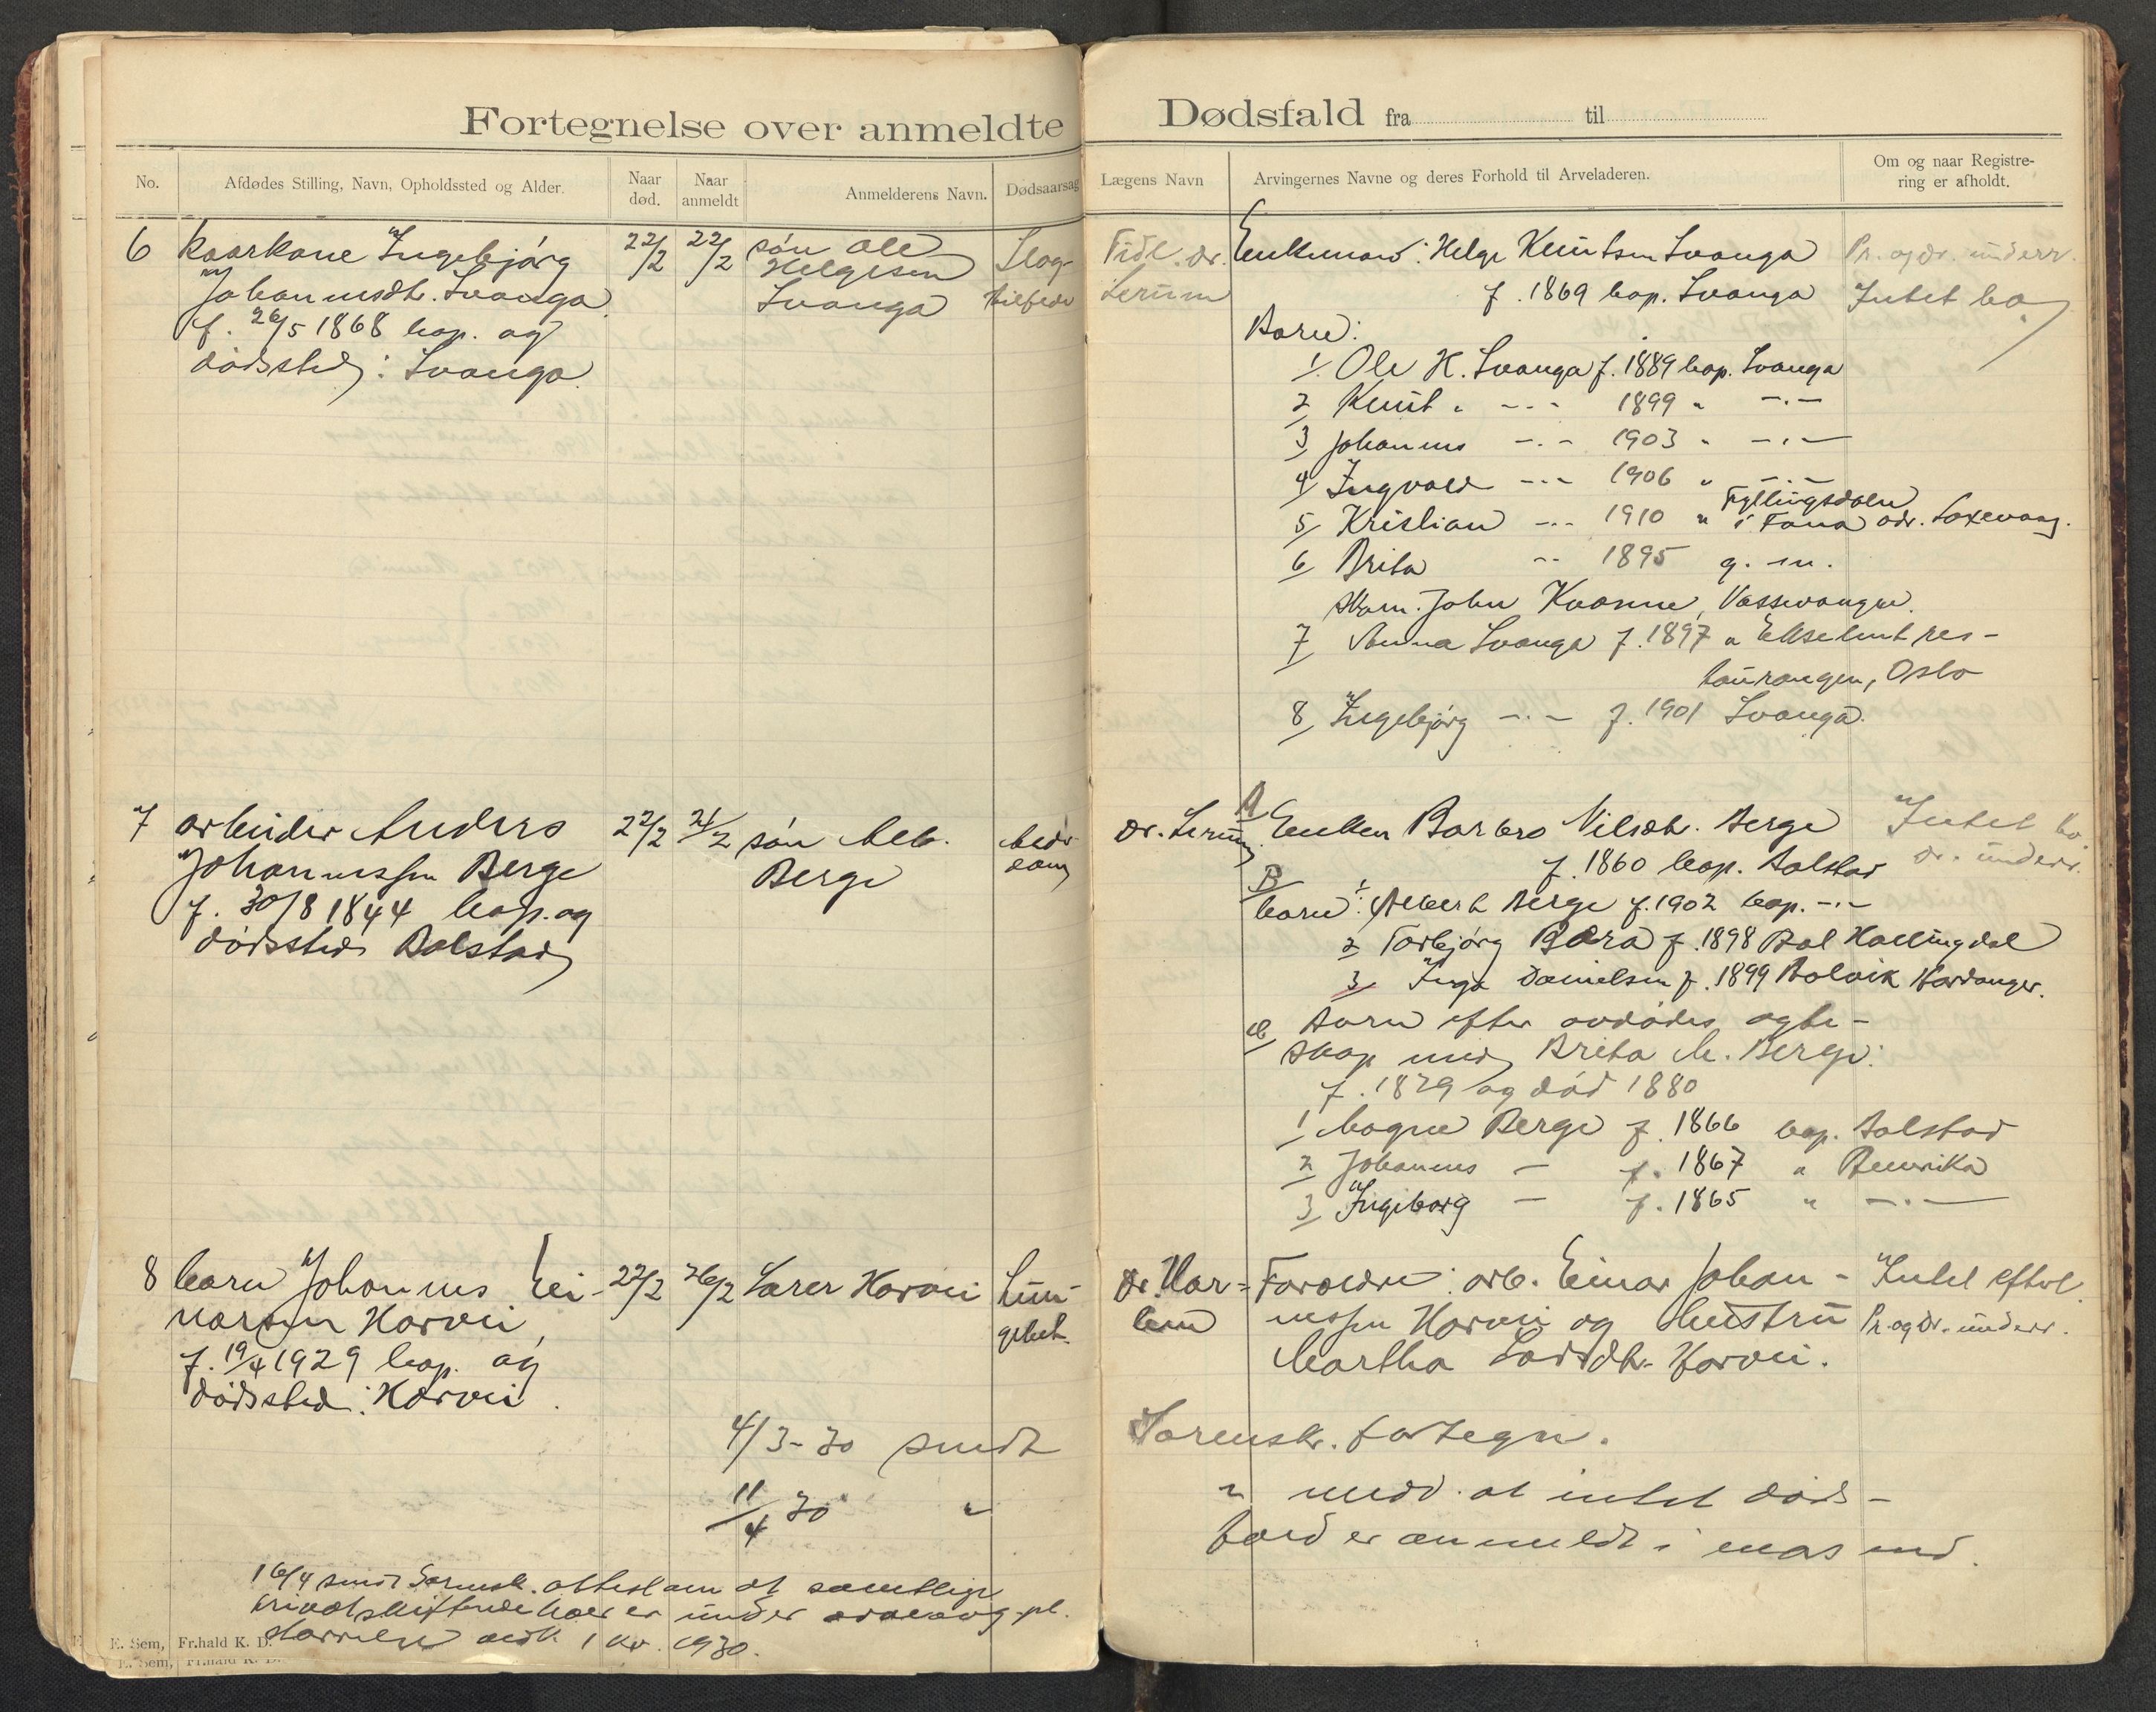 Fortegnelse over anmeldte Dødsfald fra til
No.
Afdødes Stilling, Navn, Opholdssted og Alder.
Naar død.
Naar anmeldt
Anmelderens Navn.
Dødsaarsag
Lægens Navn
Arvingernes Navne og deres Forhold til Arveladeren.
Om og naar Registre-
ring er afholdt.
6 kaarkone Ingebjørg
Johannesdtr. Svanga
f. 26/5 1868 bop. og
dødssted: Svanga
22/2 22/2 søn Ole
Helgesen
Svanga
Slag-
tilfelde
Fidl. dr.
Lerum
Enkeman: Helge Knutsen Svanga
f. 1869 bop. Svanga
Pr. og dr. underr.
Intet bo
Barn:
1 Ole H. Svanga f. 1889 bop. Svanga
2 Knut " -.- 1899 " -.-
3 Johannes -.- 1903 " -.-
4 Ingvald -.- 1906 " -.-
5 Kristian -.- 1910 " Fyllingsdalen
i Fana adr. Laxevaag.
6 Brita -.- 1895 g. m.
John Kvarme, Vossevangen.
7 Anna Svanga f. 1897 " Ekselent res-
taurangen, Oslo
8 Ingebjørg -.- f. 1901 Svanga.
7 arbeider Anders
Johannessen Berge
f. 30/8 1844 bop. og
dødssted Bolstad
22/2 24/2 søn Alb.
Berge
dr. Lerum
A Enken Barbro Nilsdtr. Berge
f. 1860 bop. Bolstad
Intet bo
dr. underr.
B
barn: 1 Albert Berge f. 1902 bop. -.-
2 Torbjørg Bæra f. 1898 Aal Hallingdal
3 Inga Danielsen f. 1899 Aalvik Hardanger.
C Barn efter avdødes egte-
skap med Brita M. Berge:
f. 1829 og død 1880
1 Magne Berge f. 1866 bop. Bolstad
2 Johannes - f. 1867 " Amerika
3 Ingeborg - f. 1865 " -.-
8 barn Johannes Ei-
narsen Horvei,
f. 19/4 1929 bop. og
dødssted: Horvei.
22/2 26/2 Lærer Horvei
Lun-
gebet.
Dr. Mar-
Foreldre: arb. Einar Johan-
nessen Horvei og hustru
Martha Larsdtr. Horvei.
Intet efterl.
Pr. og dr. underr.
4/3-30 sendt Sorensk. fortegn.
11/4 30 " " medd. at intet døds-
fald er anmeldt i mars md.
16/4 sendt Sorensk. attest om at samtlige
privatskiftende her er under
størrelse 1 kv. 1930.
E. Sem, Fr.hald K. D.
E. Sem, Fr.hald K. D.